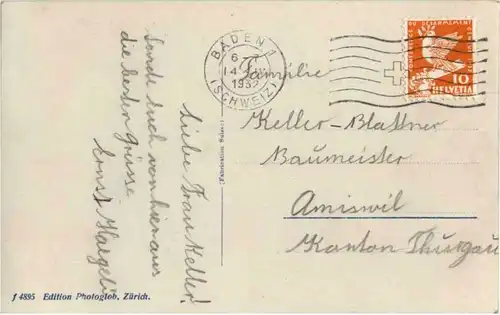 Liebe Frau Keller!
Sende Euch von hier aus
die besten Grüsse
Ernst
Familie
Keller-Blattner
Baumeister
Amiswil
Kanton Thurgau
BADEN 1
1932
(SCHWEIZ)
DU DÉSARMEMENT
10
HELVETIA
(Fabrication Suisse)
f 4895 Edition Photoglob, Zürich.